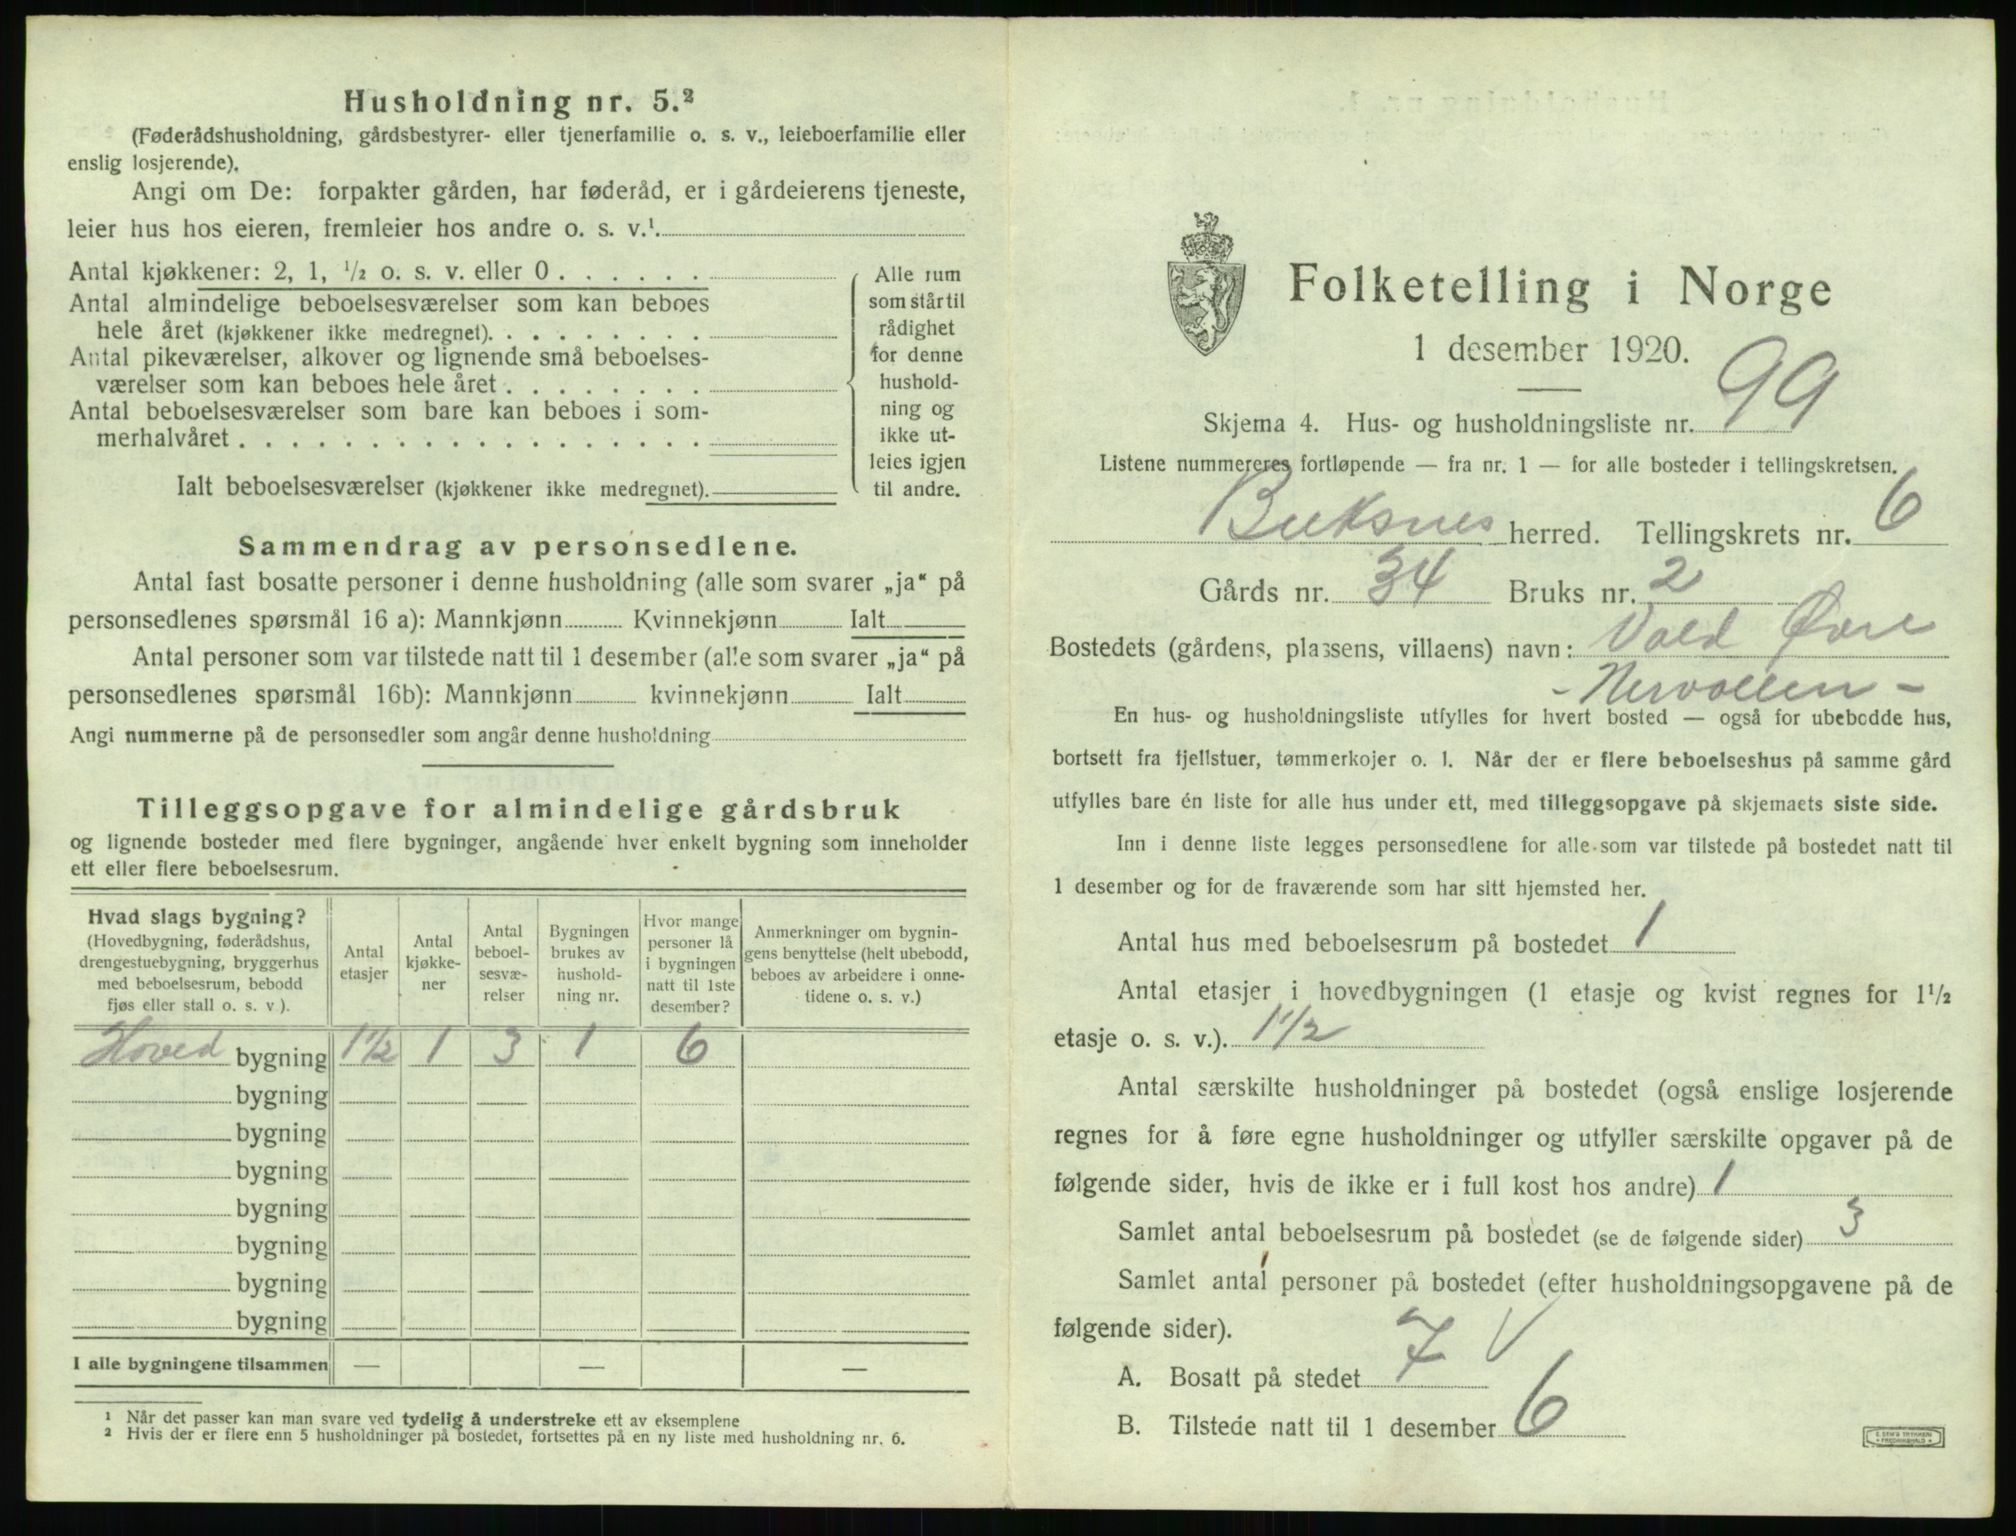 Husholdning nr. 5.²
(Føderådshusholdning, gårdsbestyrer- eller tjenerfamilie o. s. v., leieboerfamilie eller
enslig losjerende).
Angi om De: forpakter gården, har føderåd, er i gårdeierens tjeneste,
leier hus hos eieren, fremleier hos andre o. s. v.¹.
Antal kjøkkener: 2, 1, ½ o. s. v. eller 0 . . . . . .
Antal almindelige beboelsesværelser som kan beboes
hele året (kjøkkener ikke medregnet). . . . . . . . .
Antal pikeværelser, alkover og lignende små beboelses-
værelser som kan beboes hele året . . . . . . . .
Antal beboelsesværelser som bare kan beboes i som-
merhalvåret . . . . . . . . . . . . . . . . . .
Ialt beboelsesværelser (kjøkkener ikke medregnet).
Alle rum
som står til
rådighet
for denne
hushold-
ning og
ikke ut-
leies igjen
til andre.
Sammendrag av personsedlene.
Antal fast bosatte personer i denne husholdning (alle som svarer „ja“ på
personsedlenes spørsmål 16 a): Mannkjønn Kvinnekjønn Ialt
Antal personer som var tilstede natt til 1 desember (alle som svarer „ja“ på
personsedlenes spørsmål 16b): Mannkjønn kvinnekjønn Ialt
Angi nummerne på de personsedler som angår denne husholdning
Tilleggsopgave for almindelige gårdsbruk
og lignende bosteder med flere bygninger, angående hver enkelt bygning som inneholder
ett eller flere beboelsesrum.
Hvad slags bygning?
(Hovedbygning, føderådshus,
drengestuebygning, bryggerhus
med beboelsesrum, bebodd
fjøs eller stall o. s. v.).
Antal
etasjer
Antal
kjøkke-
ner
Antal
beboel-
sesvæ-
relser
Bygningen
brukes av
hushold-
ning nr.
Hvor mange
personer lå
i bygningen
natt til 1ste
desember?
Anmerkninger om bygnin-
gens benyttelse (helt ubebodd,
beboes av arbeidere i onne-
tidene o. s. v.)
Hoved bygning 1½ 1 3 1 6
bygning
bygning
bygning
bygning
bygning
bygning
bygning
I alle bygningene tilsammen — — —
¹ Når det passer kan man svare ved tydelig å understreke ett av eksemplene
² Hvis der er flere enn 5 husholdninger på bostedet, fortsettes på en ny liste med husholdning nr. 6.
Folketelling i Norge
1 desember 1920.
Skjema 4. Hus- og husholdningsliste nr. 99
Listene nummereres fortløpende — fra nr. 1 — for alle bosteder i tellingskretsen.
Buksnes herred. Tellingskrets nr. 6
Gårds nr. 34 Bruks nr. 2
Bostedets (gårdens, plassens, villaens) navn: Vold Øvre
- Nervollen -
En hus- og husholdningsliste utfylles for hvert bosted — også for ubebodde hus,
bortsett fra fjellstuer, tømmerkojer o. l. Når der er flere beboelseshus på samme gård
utfylles bare én liste for alle hus under ett, med tilleggsopgave på skjemaets siste side.
Inn i denne liste legges personsedlene for alle som var tilstede på bostedet natt til
1 desember og for de fraværende som har sitt hjemsted her.
Antal hus med beboelsesrum på bostedet 1
Antal etasjer i hovedbygningen (1 etasje og kvist regnes for 1½
etasje o. s. v.). 1½
Antal særskilte husholdninger på bostedet (også enslige losjerende
regnes for å føre egne husholdninger og utfyller særskilte opgaver på de
følgende sider, hvis de ikke er i full kost hos andre) 1
Samlet antal beboelsesrum på bostedet (se de følgende sider) 3
Samlet antal personer på bostedet (efter husholdningsopgavene på de
følgende sider).
A. Bosatt på stedet 7
B. Tilstede natt til 1 desember 6